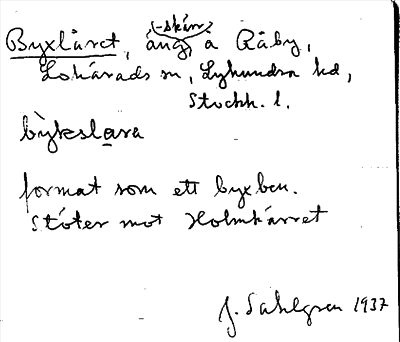 (-skär)
Byxlåret, äng, å Råby,
Lohärads sn, Lyhundra hd,
Stockh. l.
bỳkslara
format som ett byxben.
Stöter mot Holmkärret
J. Sahlgren 1937